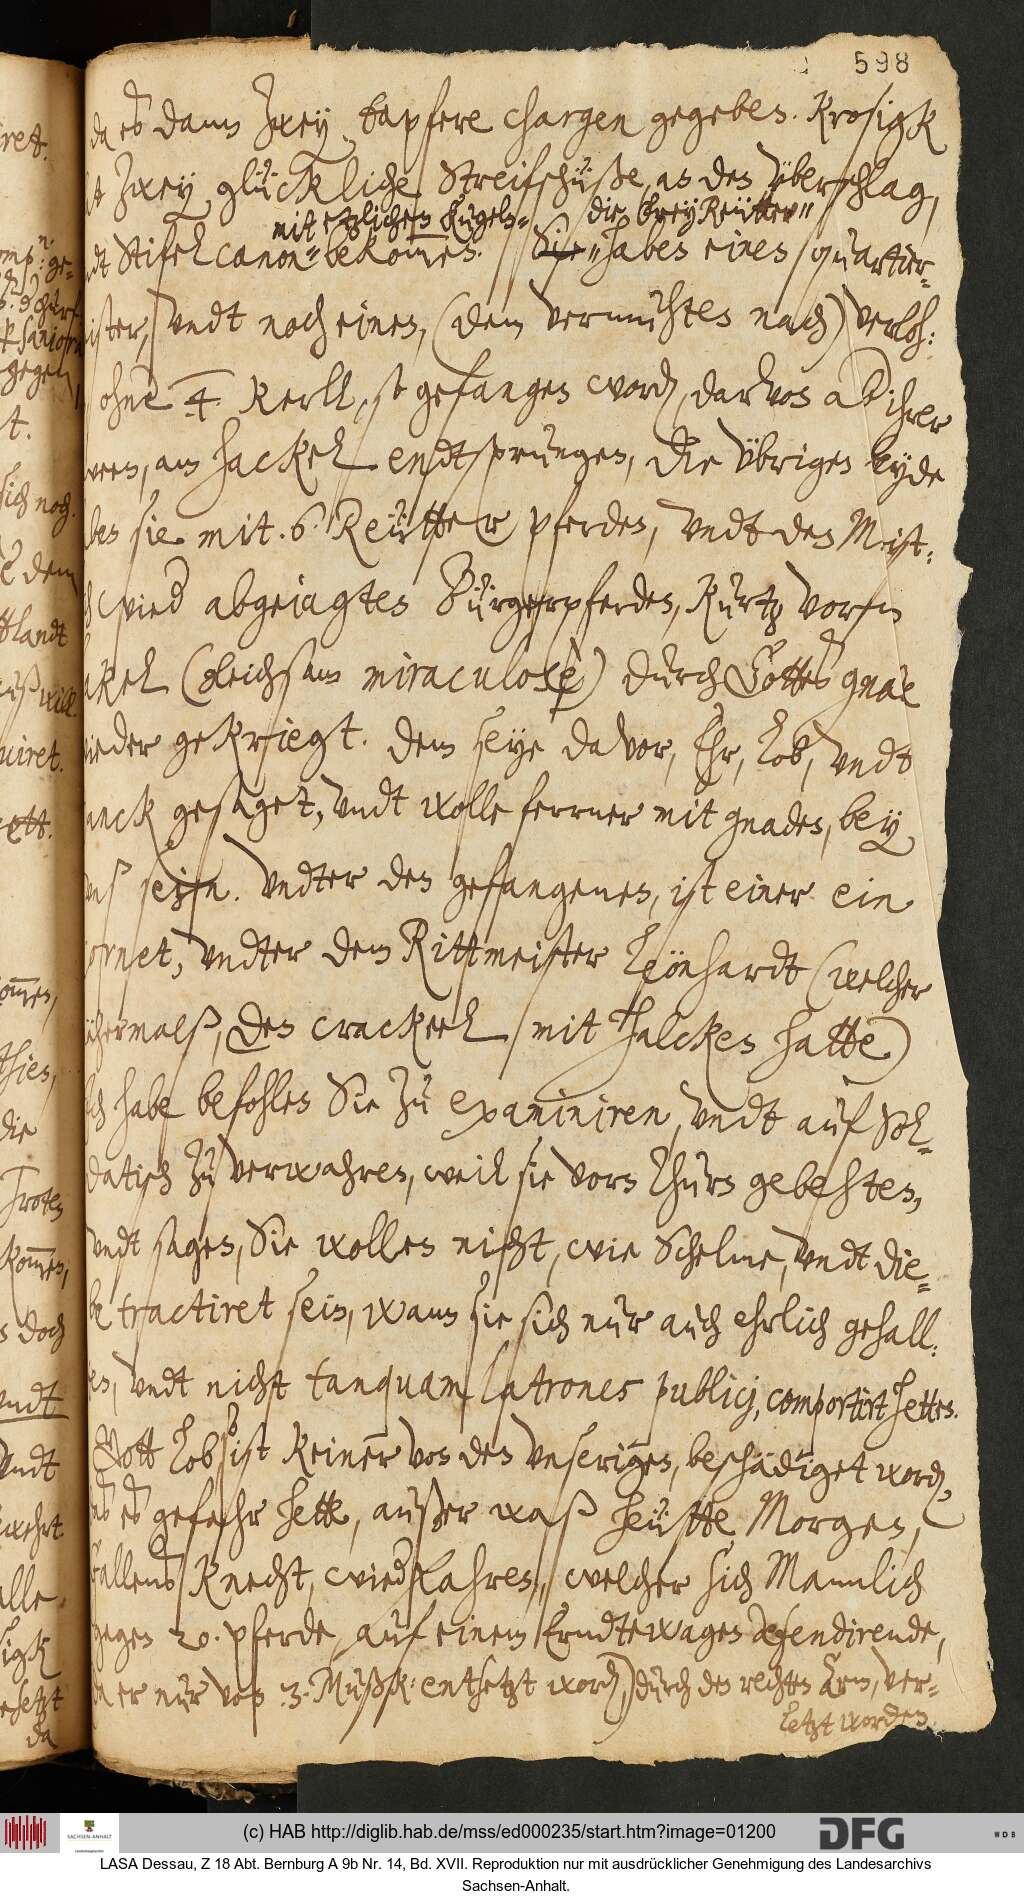 598
da es dann zwey tapfere chargen gegeben. Krosigk
zwey glückliche Streifschüße, an den überschlag,
mit etzlichen kugeln die FreyReütter
ndt Stifel canon bekommen. Sie haben einen quartier-
ister, undt noch einen, (dem vermuhten nach) verloh:
ohne 4. Kerll, so gefangen word, darvon ab ihrer
am hackel endtsprungen, die übrigen beyde
ben sie mit .6. Reütter pferden, undt den Mist:
wied abgejagten Bürgerpferden, kurtz vorm
akel (gleichsam miraculosè) durch Gottes gnade
ieder gekriegt. dem seye davor, Ehr, Lob, undt
anck gesaget, undt wolle ferrner mit gnaden, bey
uns sein. Undter den gefangenen, ist einer ein
ornet, undter dem Rittmeister Leonhardt (welcher
ichermalß, den crackeel mit Halcken hatte)
ch habe befohlen Sie zu examiniren, undt auf Sol-
datisch zu verwahren, weil sie vorn Thurn gebehten,
undt sagen, Sie wollen nicht, wie Schelme, undt die-
be tractiret sein, wann sie sich nur auch ehrlich gehall:
ten, undt nicht tanquam latrones publicj, comportirt hetten.
Gott Lob ist keiner von den unserigen, beschädiget word,
es gefehr hette, außer waß heütte Morgen,
allens Knecht, wiedfahren, welcher sich Mannlich
gegen 20. pferde, auf einem Erndtewagen defendirende,
er nur von .3. Mußk: entsetzt word, durch den rechten Arm, ver-
letzt worden.
ret.
gegen
t.
sich noch
dem
ttlandt
uiret.
ommen,
die
kommen,
doch
undt
undt
alle
sigk
da
(c) HAB http://diglib.hab.de/mss/ed000235/start.htm?image=01200
SACHSEN-ANHALT
DFG
WDB
LASA Dessau, Z 18 Abt. Bernburg A 9b Nr. 14, Bd. XVII. Reproduktion nur mit ausdrücklicher Genehmigung des Landesarchivs
Sachsen-Anhalt.